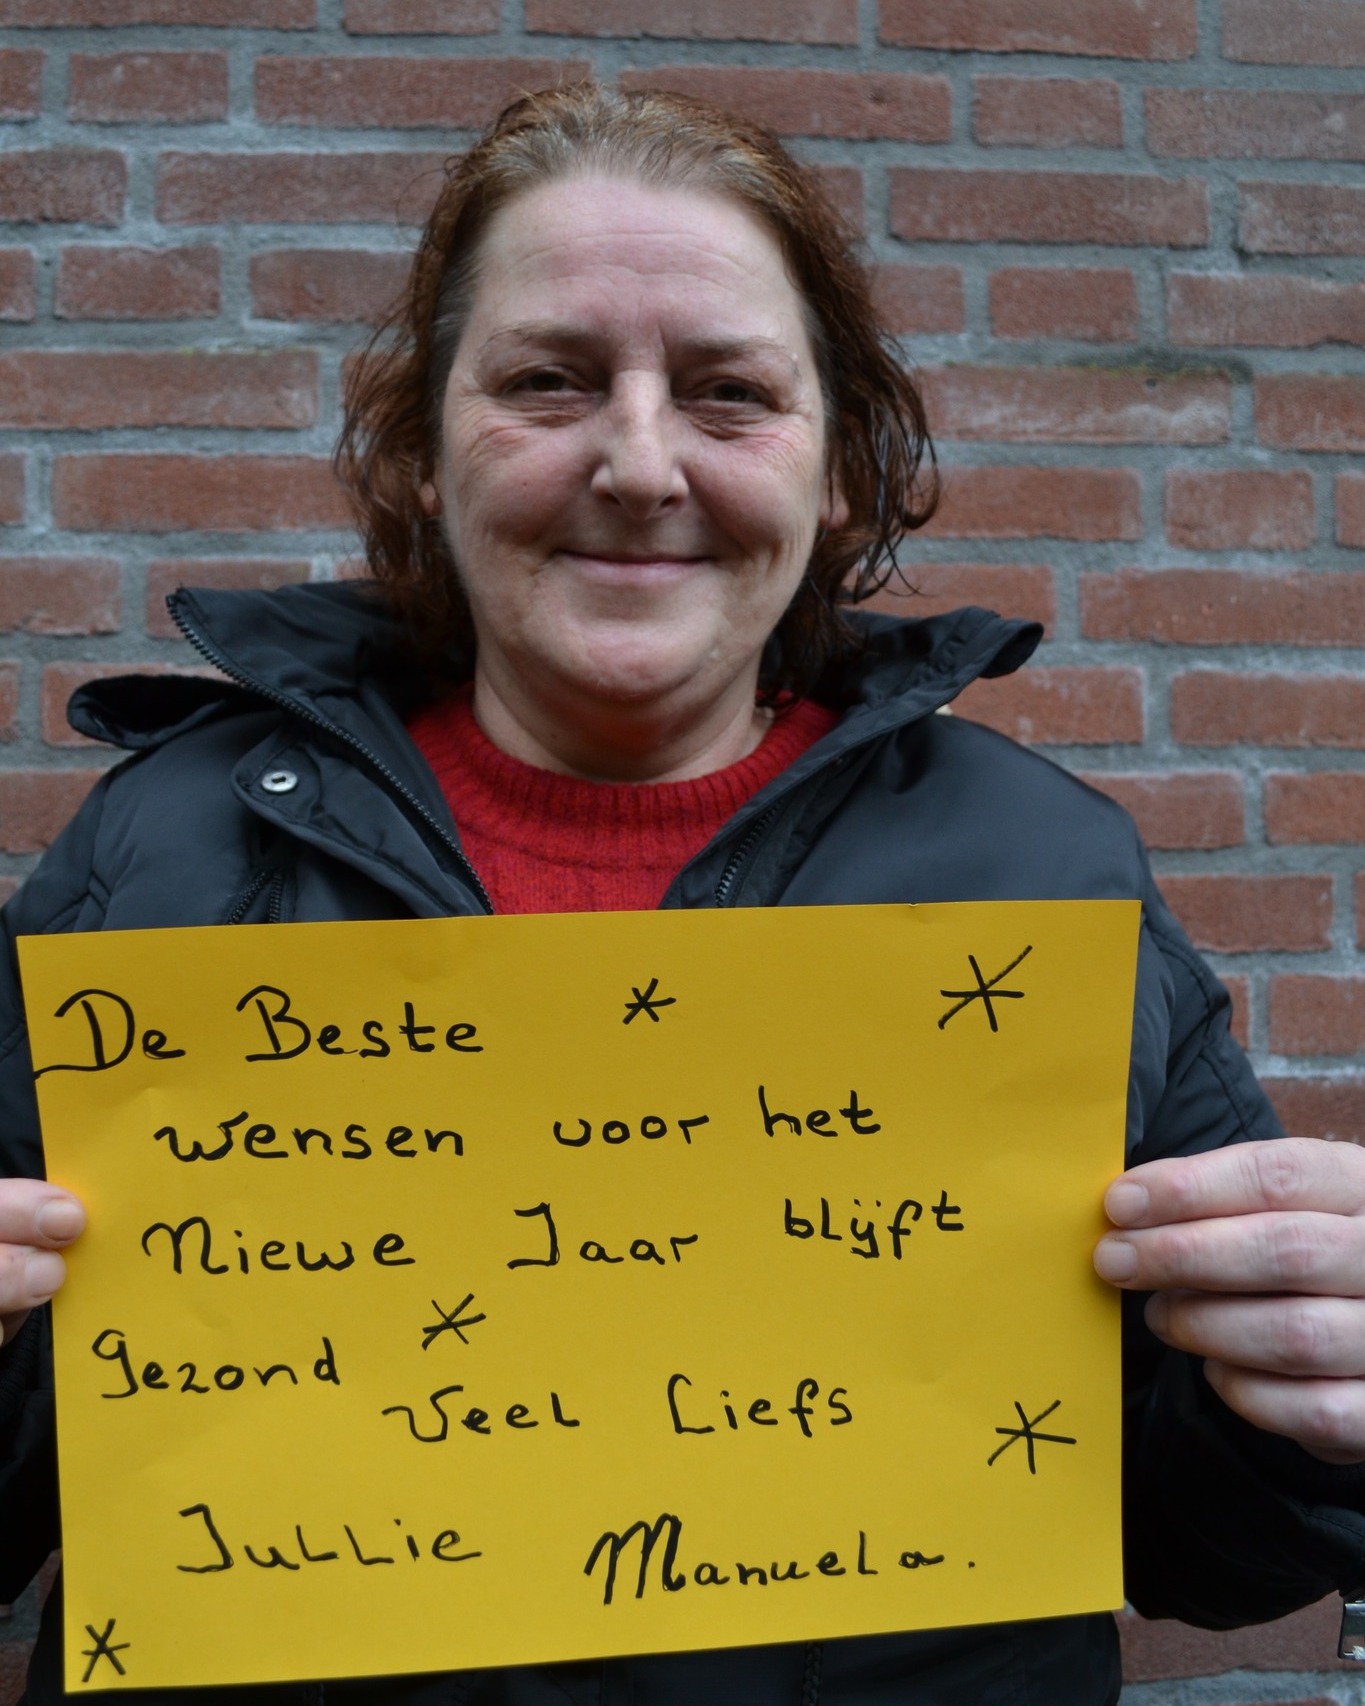 De Beste
wensen voor het
Niewe Jaar blijft
gezond
Veel Liefs
Jullie Manuela.